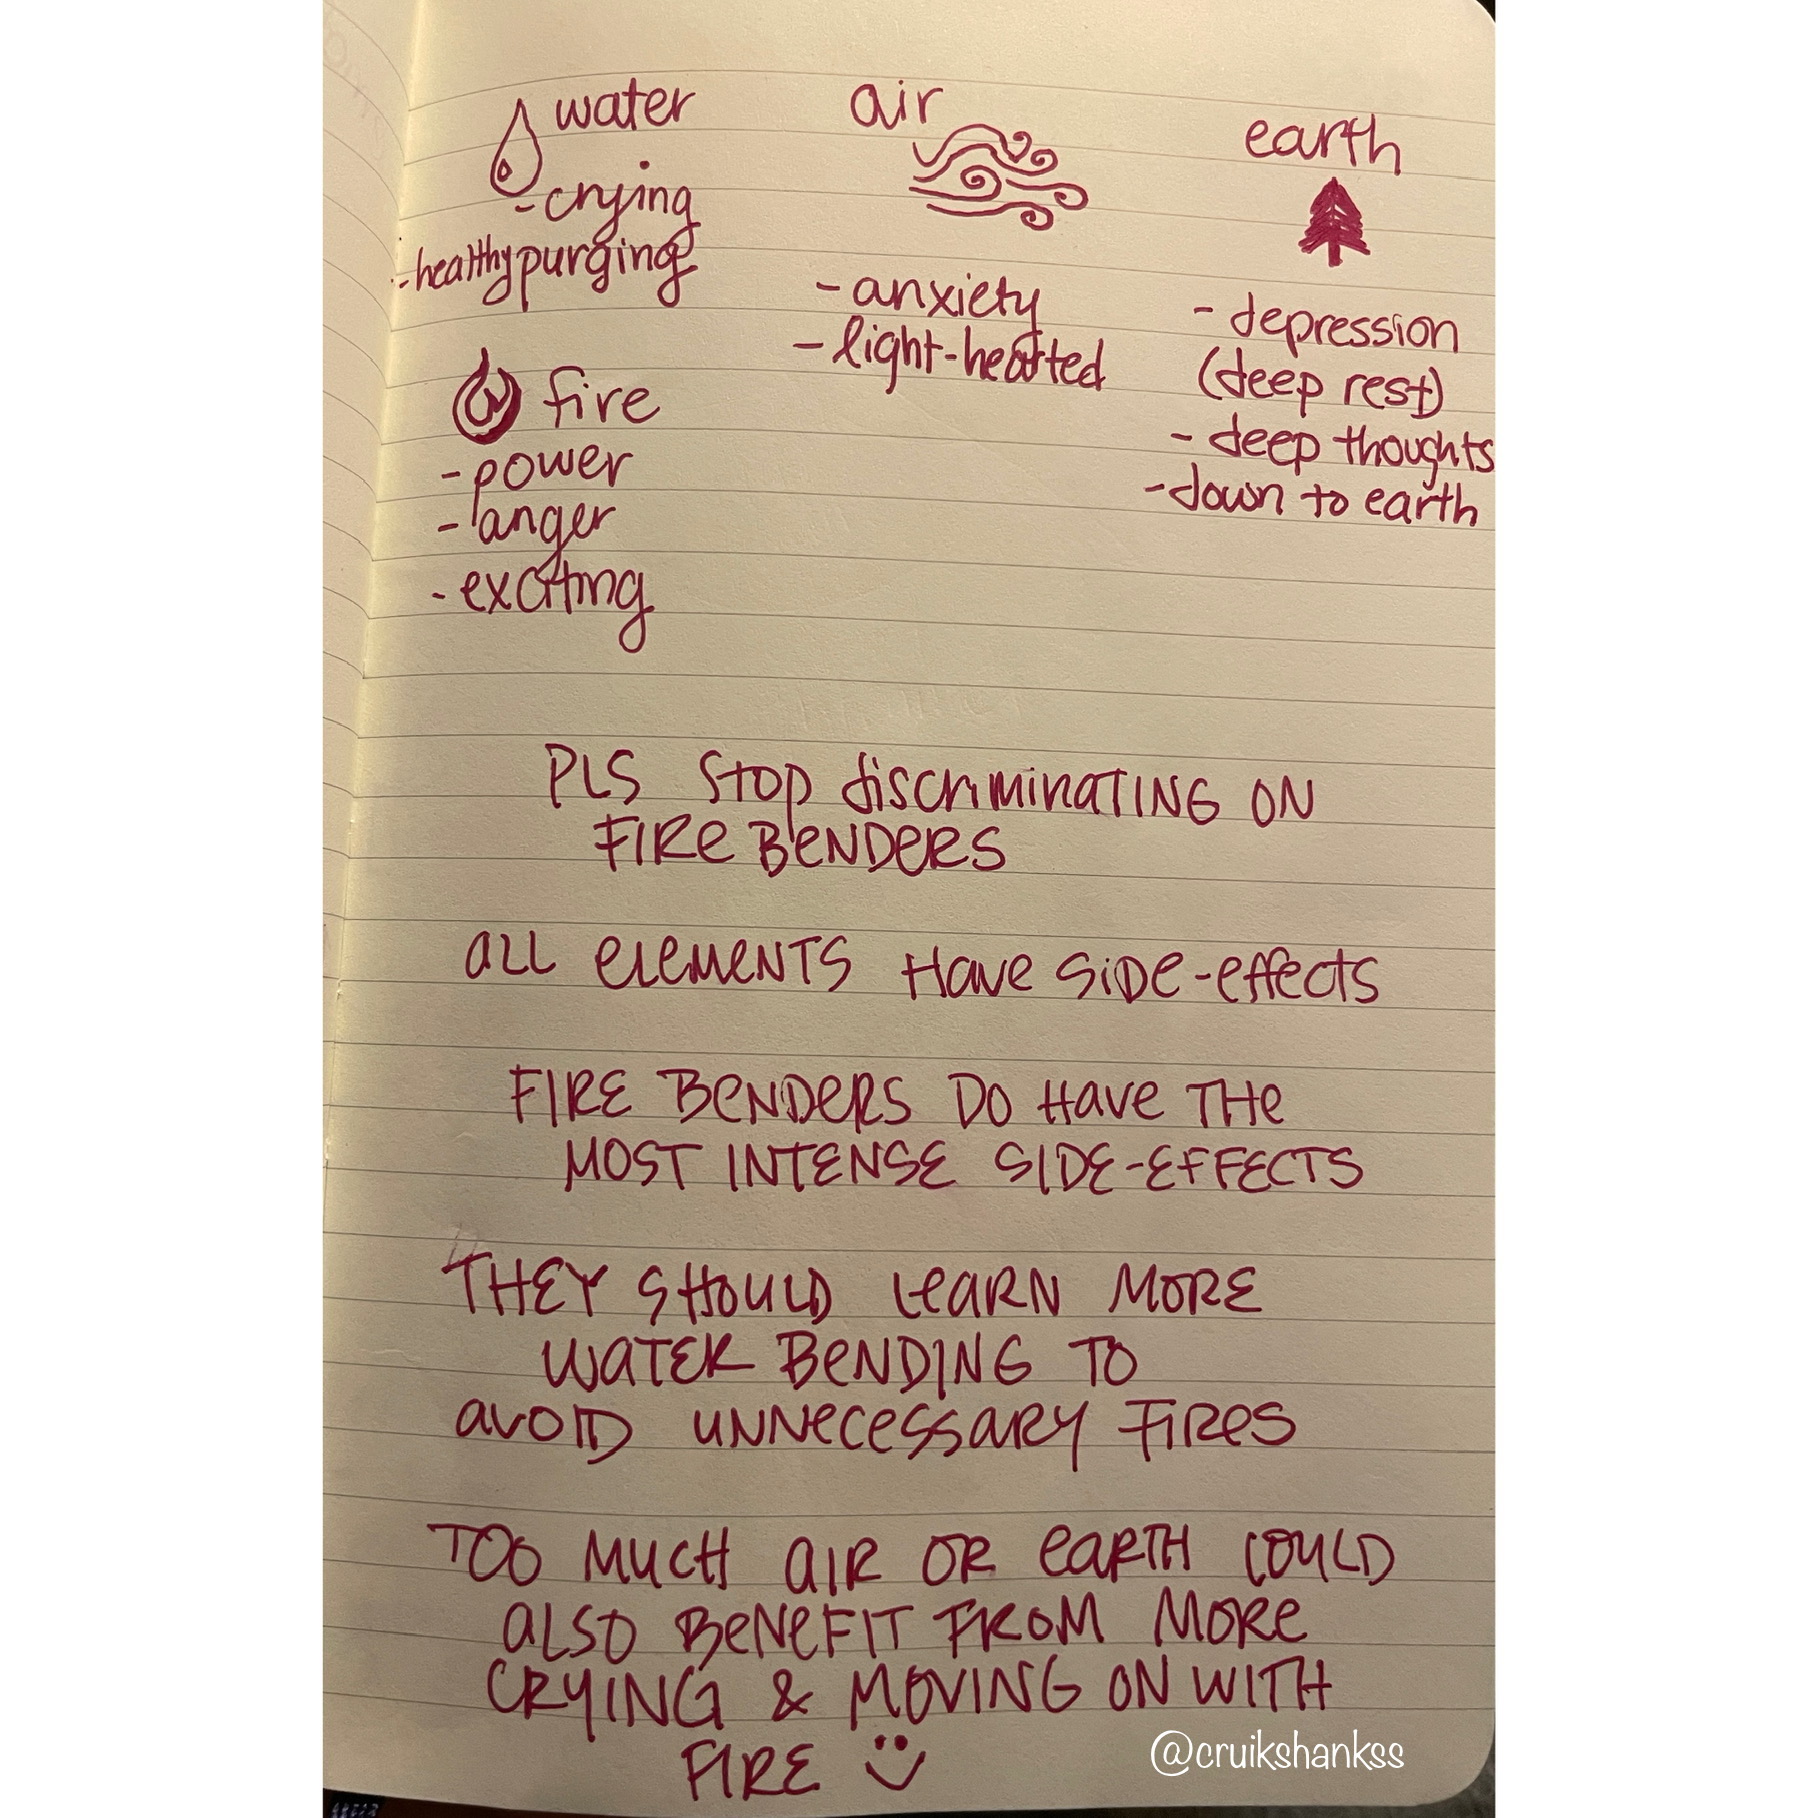 water
-crying
-healthy purging
fire
-power
-anger
-exciting
air
-anxiety
-light-hearted
earth
-depression
(deep rest)
-deep thoughts
-down to earth
PLS STOP discriminATING ON
FIRE BENDERS
ALL ELEMENTS HAVE SIDE-EFFECTS
FIRE BENDERS DO HAVE THE
MOST INTENSE SIDE-EFFECTS
THEY SHOULD LEARN MORE
WATER BENDING TO
AVOID UNNECESSARY FIRES
TOO MUCH AIR OR EARTH COULD
ALSO BENEFIT FROM MORE
CRYING & MOVING ON WITH
FIRE
@cruikshankss